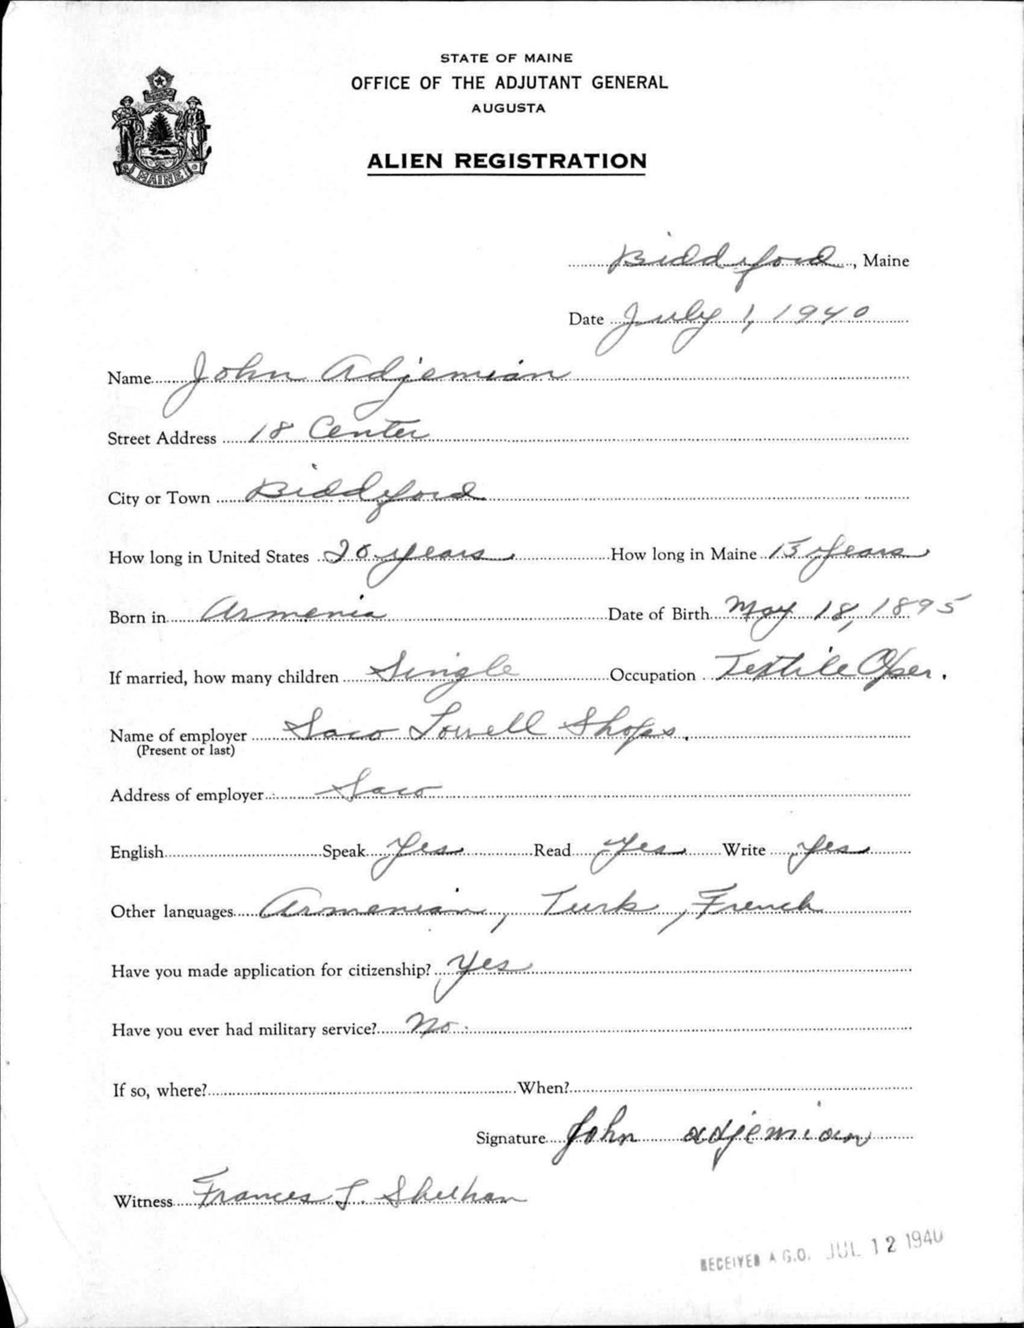 STATE OF MAINE
OFFICE OF THE ADJUTANT GENERAL
AUGUSTA
ALIEN REGISTRATION
MAINE
Biddeford, Maine
Date July 1, 1940
Name John Adjemian
Street Address 18 Center
City or Town Biddeford
How long in United States 20 years How long in Maine 15 years
Born in Armenia Date of Birth May 18, 1895
If married, how many children Single Occupation Textile Oper.
Name of employer Saco Lowell Shops.
(Present or last)
Address of employer Saco
English Speak Yes Read Yes Write Yes
Other languages Armenian, Turk, French
Have you made application for citizenship? Yes
Have you ever had military service? No
If so, where? When?
Signature John adjemian
Witness Frances
RECEIVED A.G.O. JUL 12 1940